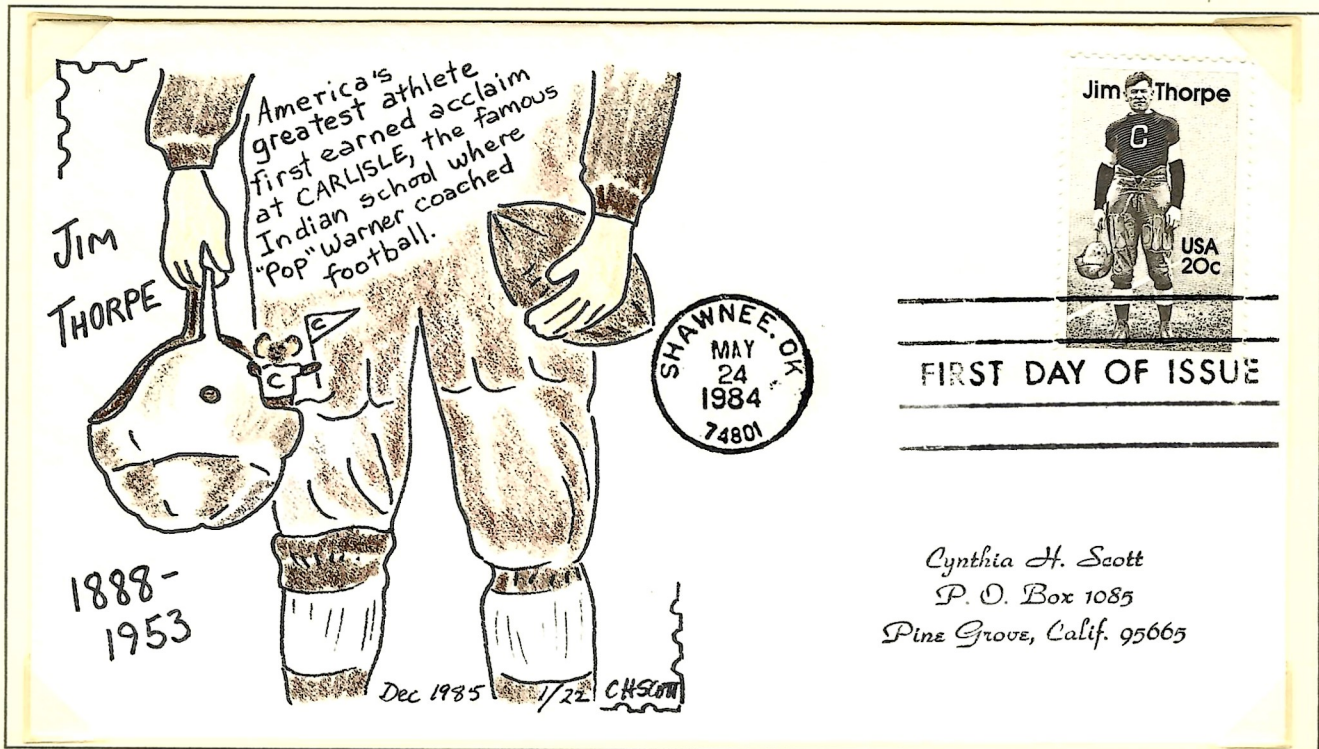 America's
greatest athlete
first earned acclaim
at CARLISLE, the famous
Indian school where
"POP" Warner coached
football.
JIM
THORPE
C
C
1888-
1953
Dec 1985 1/22 CHScott
SHAWNEE. OK
MAY
24
1984
74801
Jim Thorpe
C
USA
20c
FIRST DAY OF ISSUE
Cynthia H. Scott
P. O. Box 1085
Pine Grove, Calif. 95665